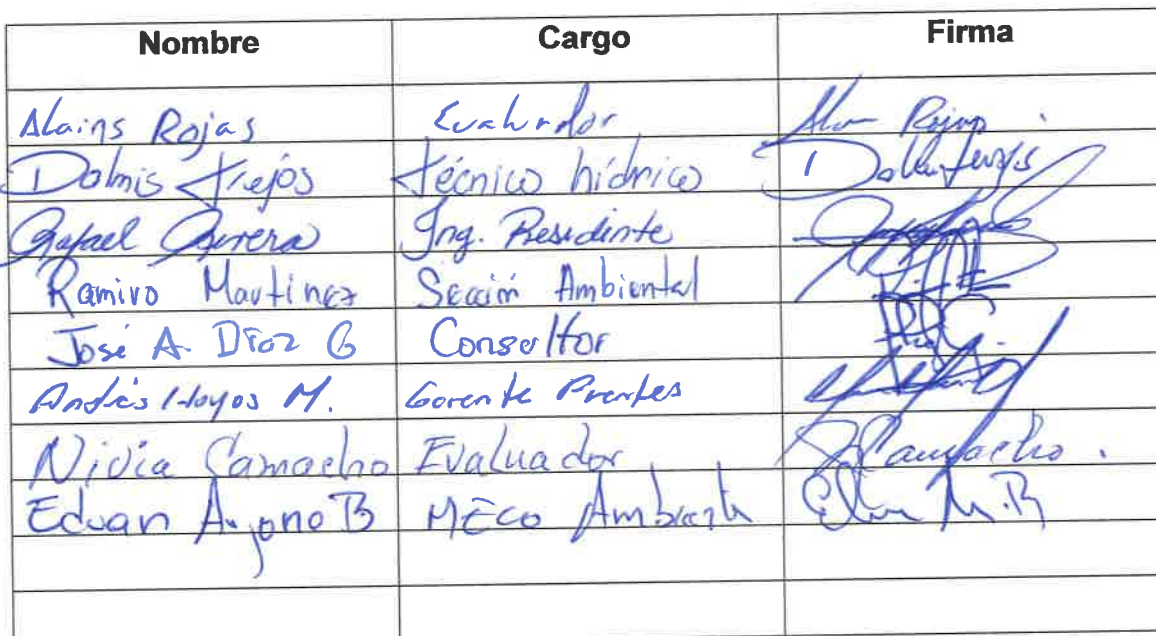 Nombre Cargo Firma
Alains Rojas Evaluador Rojas
Dalmis Trejos Técnico hídrico
Rafael Ing. Residente
Ramiro Martinez Sección Ambiental
José A. Díaz G Consultor
Andrés Hoyos M. Gerente Puentes
Nivia Camacho Evaluador Camacho.
Eduan B MECO Ambiente